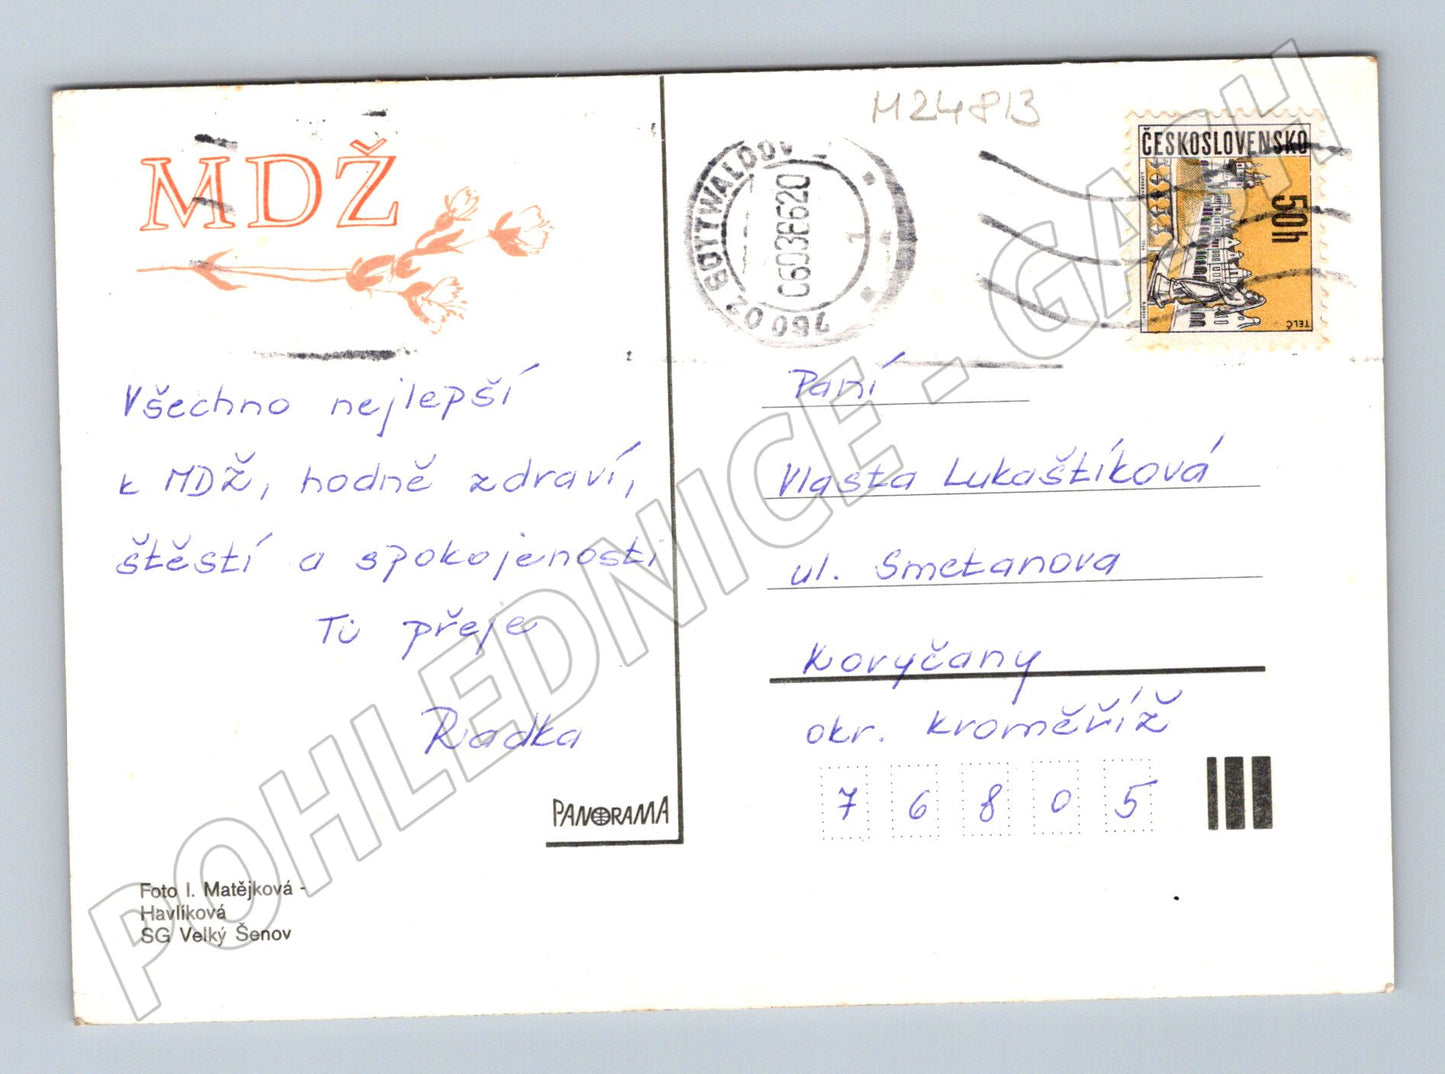 MDŽ
Všechno nejlepší
k MDŽ, hodně zdraví,
štěstí a spokojenosti
Ti přeje
Radka
PANORAMA
Foto I. Matějková -
Havlíková
SG Velký Šenov
M24813
760 02 GOTTWALDOV 2
060386 20
1
ČESKOSLOVENSKO
50h
TELČ
Paní
Vlasta Lukaštíková
ul. Smetanova
Koryčany
okr. Kroměříž
7 6 8 0 5
POHLEDNICE - GASH